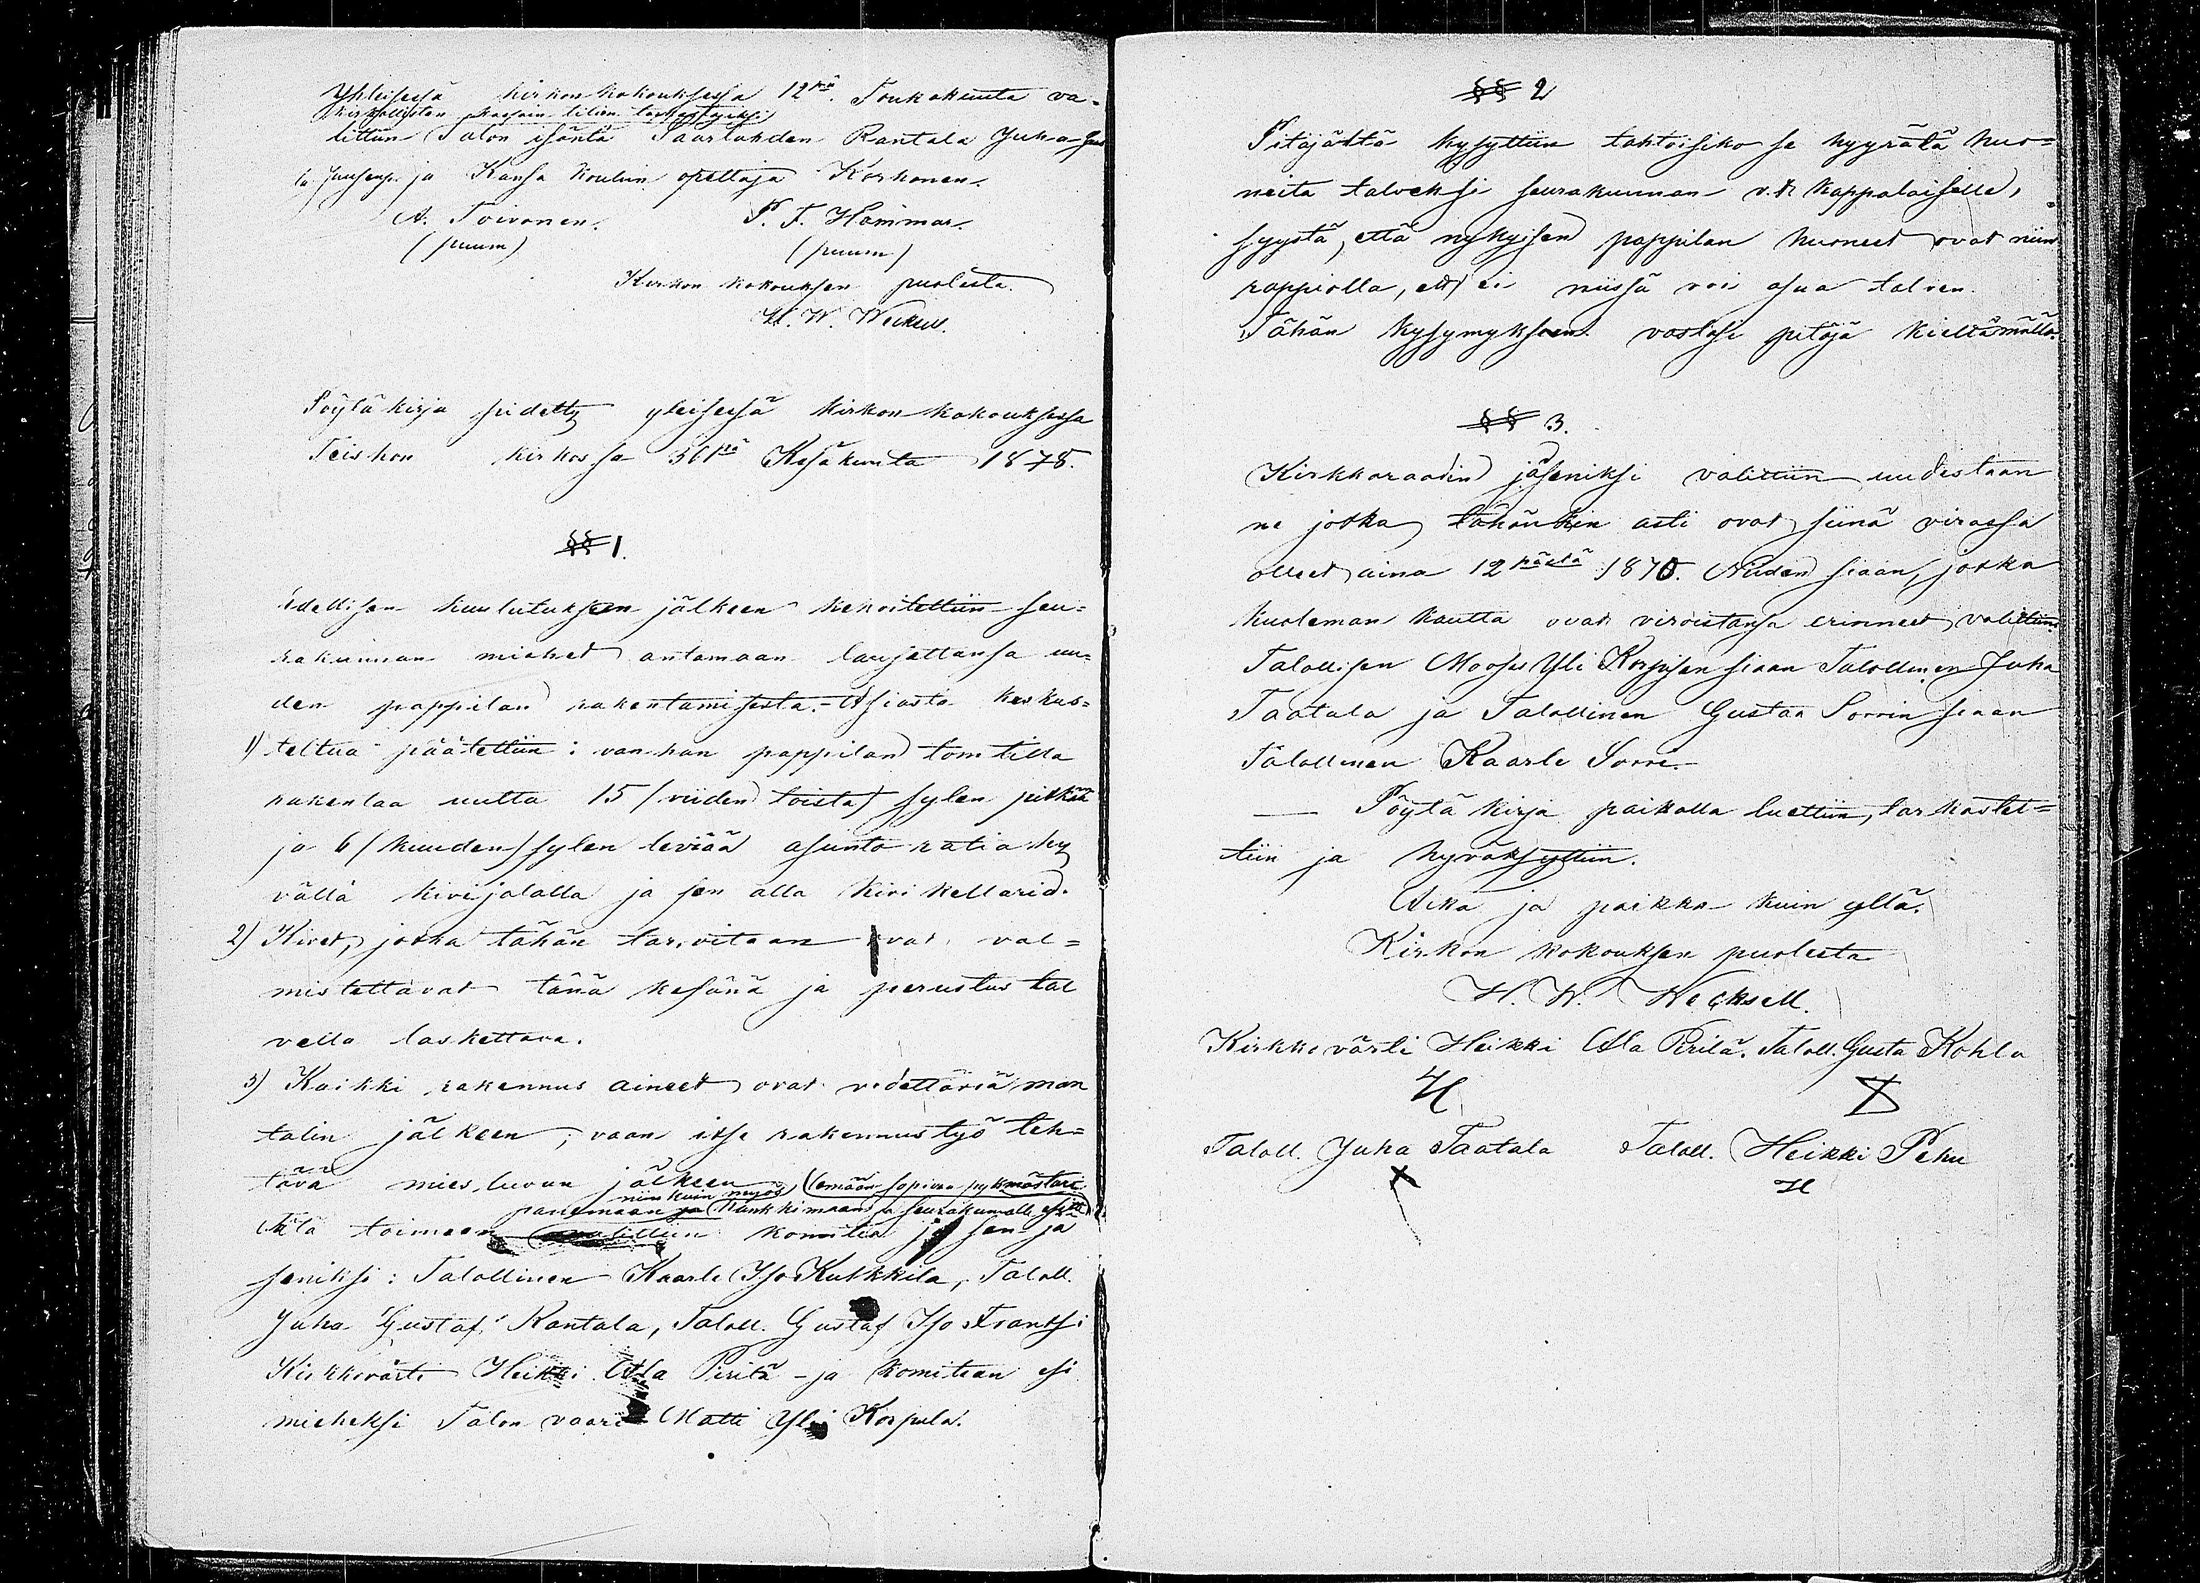 Yhteisessä kirkon kokouksessa 12nä Toukokuuta va-
kirkollisten kassain tilien tarkastajiksi
littiin Talon isäntä Paarlahden Rantala Juha
ja Kansa koulun opettaja Korhonen.
A. Toivonen. P. F. Hammar.
(puum) (puum)
Kirkon kokouksen puolesta.
H. W. Wecksell.
Pöytäkirja pidetty yleisessä kirkon kokouksessa
Teiskon kirkossa Kesäkuuta 1878.
§§ 1.
Edellisen kuulutuksen jälkeen kehoitettiin seu-
rakunnan miehet antamaan lausettansa uu-
den pappilan rakentamisesta. - Asiasta keskus-
1) teltua päätettiin: vanhan pappilan tomtilla
rakentaa uutta 15 (viiden toista) sylen pitkää
ja 6 (kuuden) sylen leviää asunto ratia hy
vällä kivijalalla ja sen alla kivi kellarid.
2) Kivet, jotka tähän tarvitaan ovat val=
mistettavat tänä kesänä ja perustus tal
vella laskettava.
3) Kaikki rakennus aineet ovat vedettävä man
talin jälkeen, vaan itse rakennustyö teh=
tävä mies luvun jälkeen
niin kuin myös (
panemaan ja hankkimaan ja seurakunnalle
Tätä toimeen valittiin komitea ja sen jä
seniksi: Talollinen Kaarle Iso Kulkkila, Taloll.
Juha Gustaf Rantala, Taloll. Gustaf Iso Frantsi
Kirkkovärti Heikki Ala Pirilä - ja komitean esi
mieheksi Talon vaari Matti Yli Korpula.
§§ 2
Pitäjältä kysyttiin tahtoisiko se hyyrätä huo=
neita talveksi seurakunnan v.t. kappalaiselle,
syystä, että nykyisen pappilan huoneet ovat niin
rappiolla, ett'ei niissä voi asua talven.
Tähän kysymykseen vastasi pitäjä kieltämällä.
§§ 3.
Kirkkoraadin jäseniksi valittiin uudestaan
ne jotka tähän kin asti ovat siinä virassa
olleet aina 12 päätä 1870. Niiden siaan, jotka
kuoleman kautta ovat viroistansa erinneet, valittiin
Talollisen Mooses Yli Korpisen siaan Talollinen Juha
Taatala ja Talollinen Gustaa Sorrin siaan
Talollinen Kaarle Sorri.
— Pöytä kirja paikalla luettiin, tarkastet=
tiin ja hyväksyttiin.
Aika ja paikka kuin yllä.
Kirkon kokouksen puolesta
H. W. Wecksell.
Kirkkovärti Heikki Ala Pirilä. Taloll. Gusta Kohla
H
Taloll. Juha Taatala Taloll. Heikki Pehu
X H